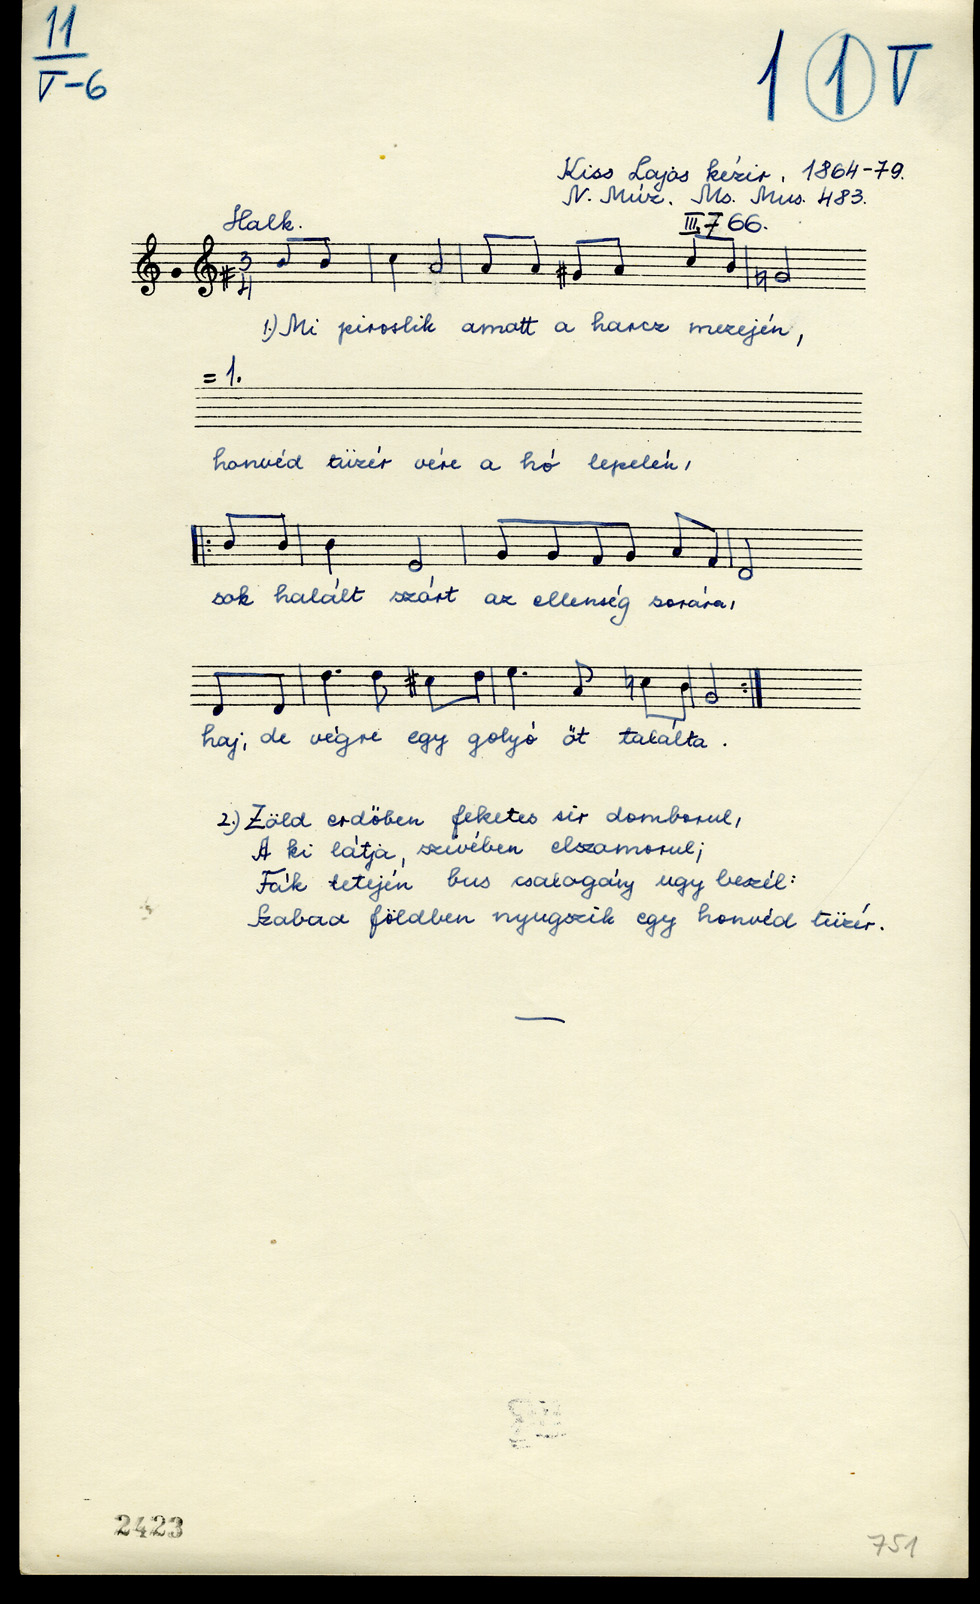 11
V-6
1 1 V
Kiss Lajos kézir. 1864-79.
N. Múz. Ms. Mus. 483.
III. 7 66.
Halk.
3
4
1.) Mi piroslik amott a harcz mezején,
= 1.
honvéd tüzér vére a hó lepelén,
sok halált szórt az ellenség sorára,
haj, de végre egy golyó őt találta.
2.) Zöld erdőben feketes sir domborul,
A ki látja, szivében elszomorul;
Fák tetején bus csalogány ugy beszél:
Szabad földben nyugszik egy honvéd tüzér.
2423
751